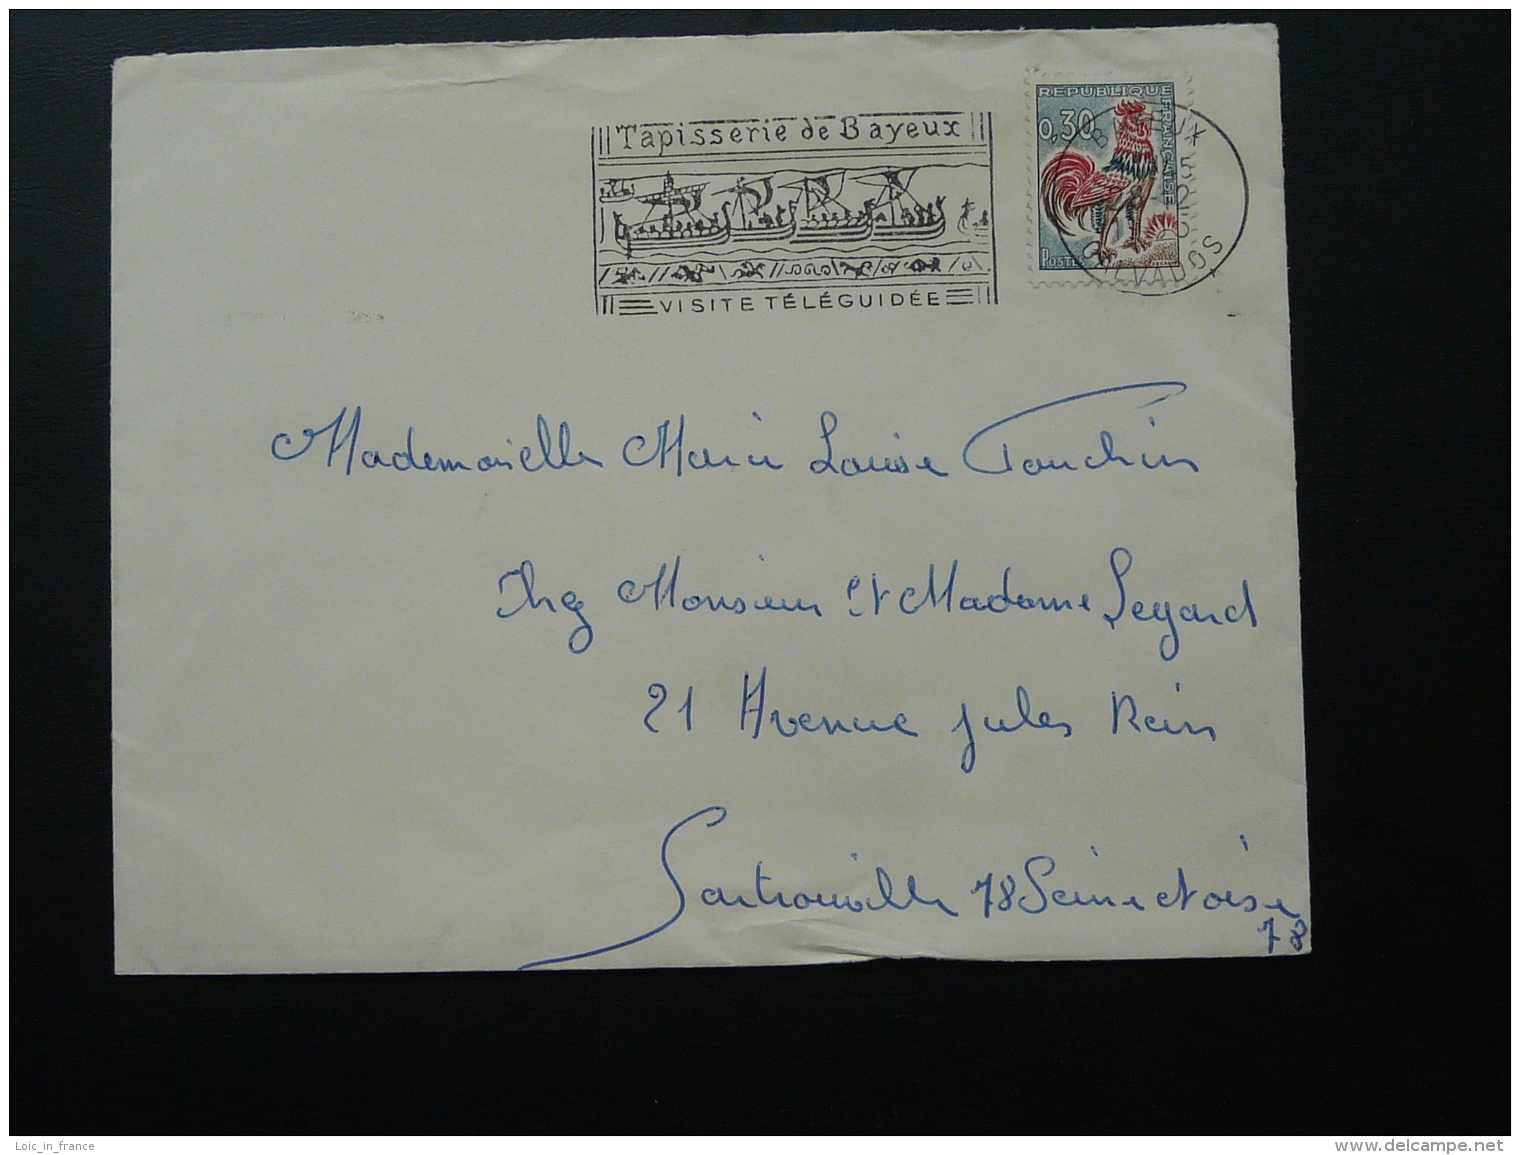 Tapisserie de Bayeux
VISITE TÉLÉGUIDÉE
REPUBLIQUE
FRANCAISE
0,30
POSTES
CALVADOS
Mademoiselle Marie Louise
Chez Monsieur et Madame Legard
21 Avenue Jules Rein
Sartrouville 78 Seine et Oise
78
Loic_in_france
www.delcampe.net